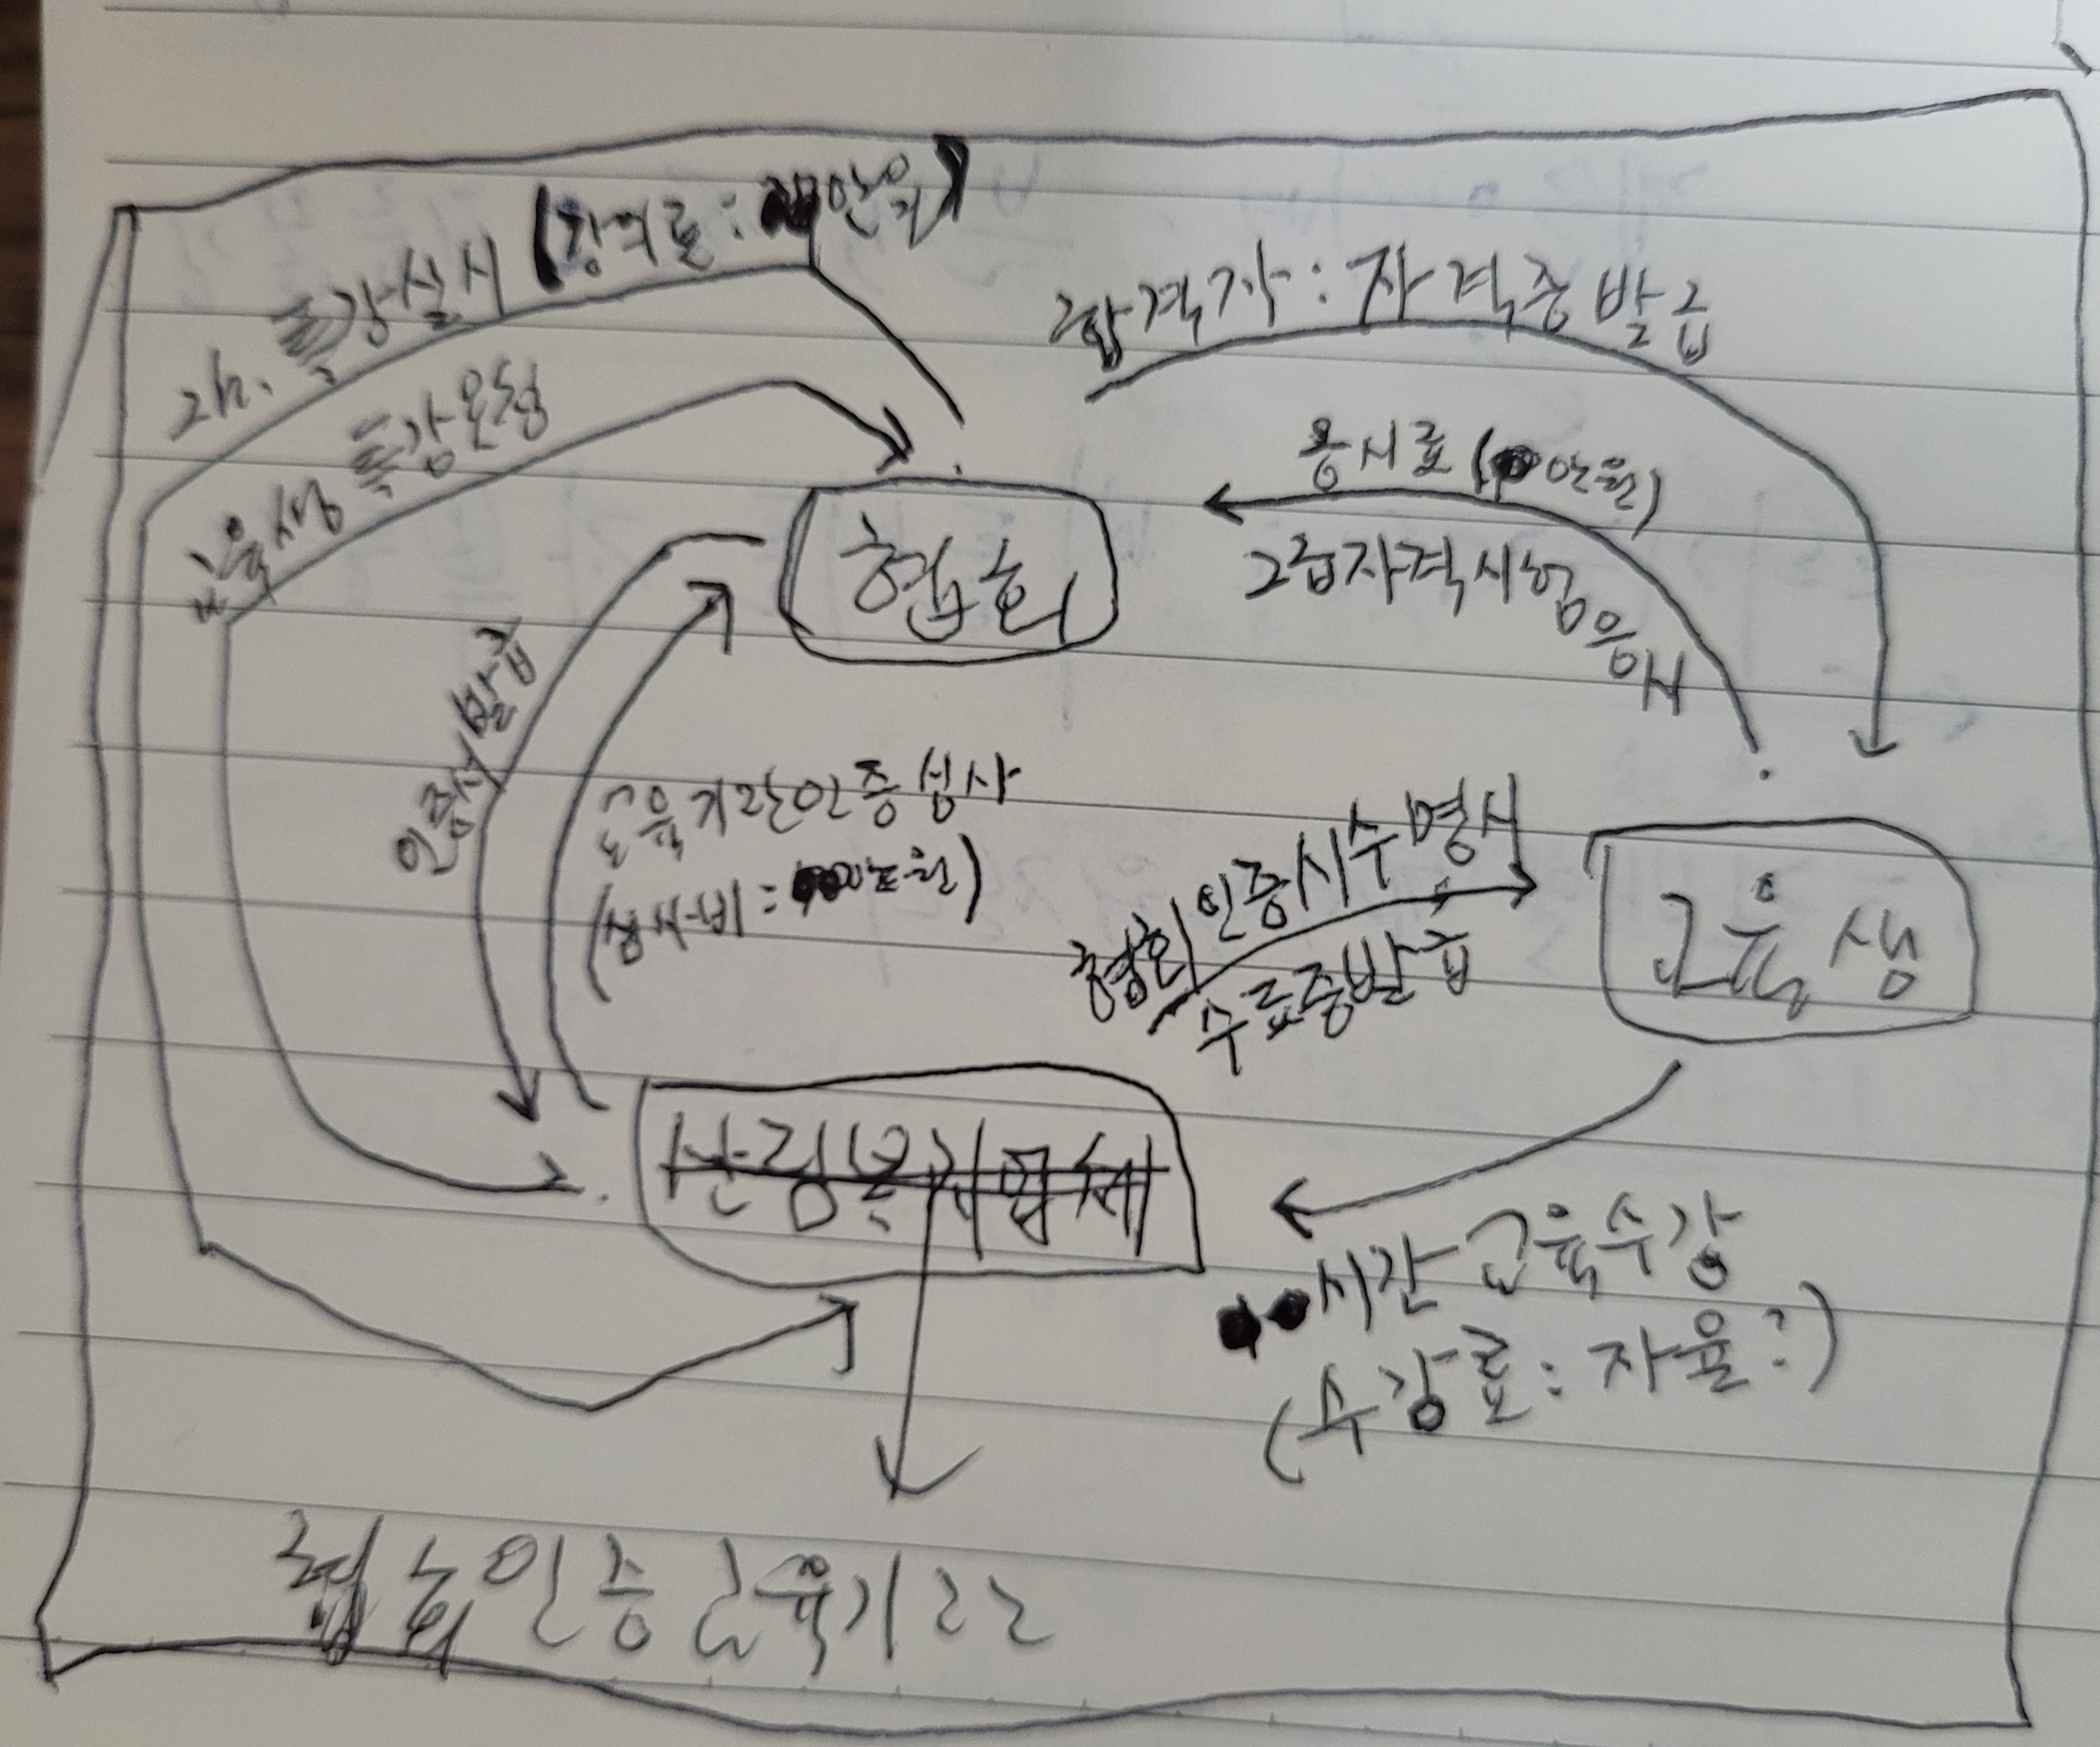 특강실시 (강의료: 만원)
합격자: 자격증발급
교육생 특강요청
응시료 (만원)
2급자격시험응시
협회
인증서발급
교육기관인증심사
(심사비: 만원)
협회인증시수명시
수료증발급
교육생
산림복지업체
시간 교육수강
(수강료: 자율?)
협회인증교육기관